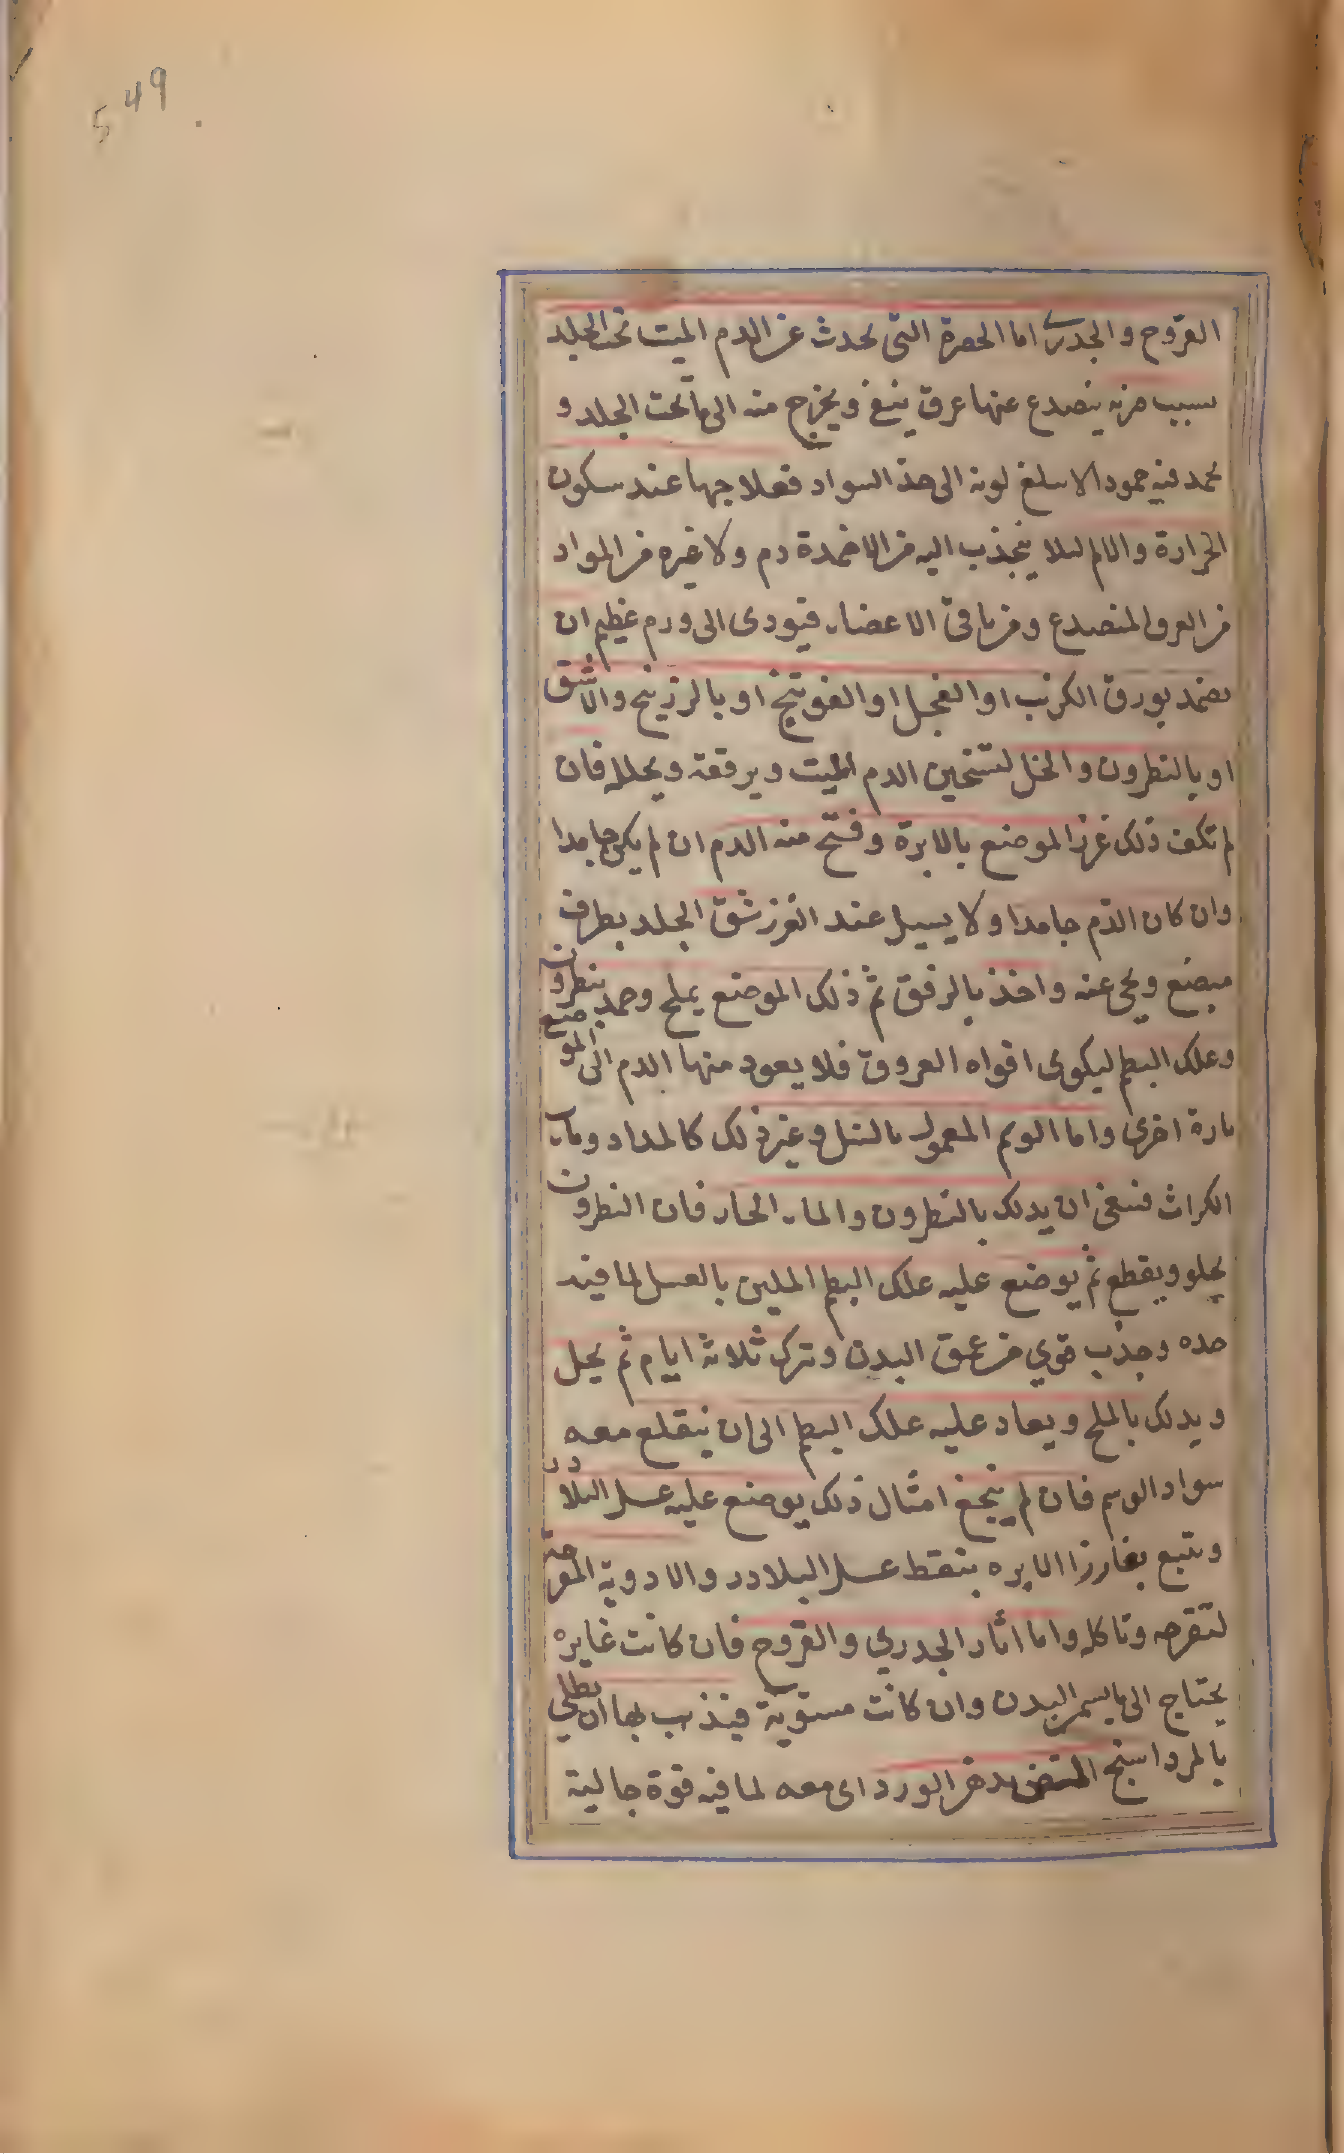 549
القروح والجدري اما الحمرة التى تحدث عن الدم الميت تحت الجلد
بسبب ضربه ينصدع عنها عرق ينبغ ويخرج منه الى ما تحت الجلد و
يجمد فيه جمودا لا يبلغ لونه الى هذا السواد فعلاجها عند سكون
الحرارة والالم لئلا ينجذب اليه من الاضمدة دم ولا غيره من المواد
من العرق المنصدع ومن باقى الاعضاء فيودى الى ورم عظيم ان
يضمد بورق الكرنب او الفجل او الفوتنج او بالزرنيخ والاشق
او بالنطرون والخل لتسخين الدم الميت ويرققه ويحلله فان
لم تكف ذلك غرز الموضع بالابرة وفتح منه الدم ان لم يكن جامدا
وان كان الدم جامدا ولا يسيل عند الغرز شق الجلد بطرف
مبضع ونحى عنه واخذ بالرفق ثم ذلك الموضع بملح وضمد بنطرون
وعلك البطم ليكوى افواه العروق فلا يعود منها الدم الى الموضع
تارة اخرى واما الوسم المعمول بالنيل وغير ذلك كالمداد وماء
الكراث فينبغى ان يدلك بالنطرون والماء الحار فان النطرون
يجلو ويقطع ثم يوضع عليه علك البطم الملين بالعسل لما فيه
حده وجذب قوي من عمق البدن وترك ثلاثة ايام ثم يحل
ويدلك بالملح ويعاد عليه علك البطم الى ان ينقلع معه
سواد الوسم فان لم ينجع امثال ذلك يوضع عليه عسل البلادر
وتتبع بغارز الابره بنقط عسل البلادر والادوية المقرحة
لتقرحه وتاكله واما اثار الجدري والقروح فان كانت غايره
يحتاج الى ما يسمن البدن وان كانت مستوية فيذهب بها ان يطلي
بالمرداسنج المبيض بدهن الورد اى معه لما فيه قوة جالية